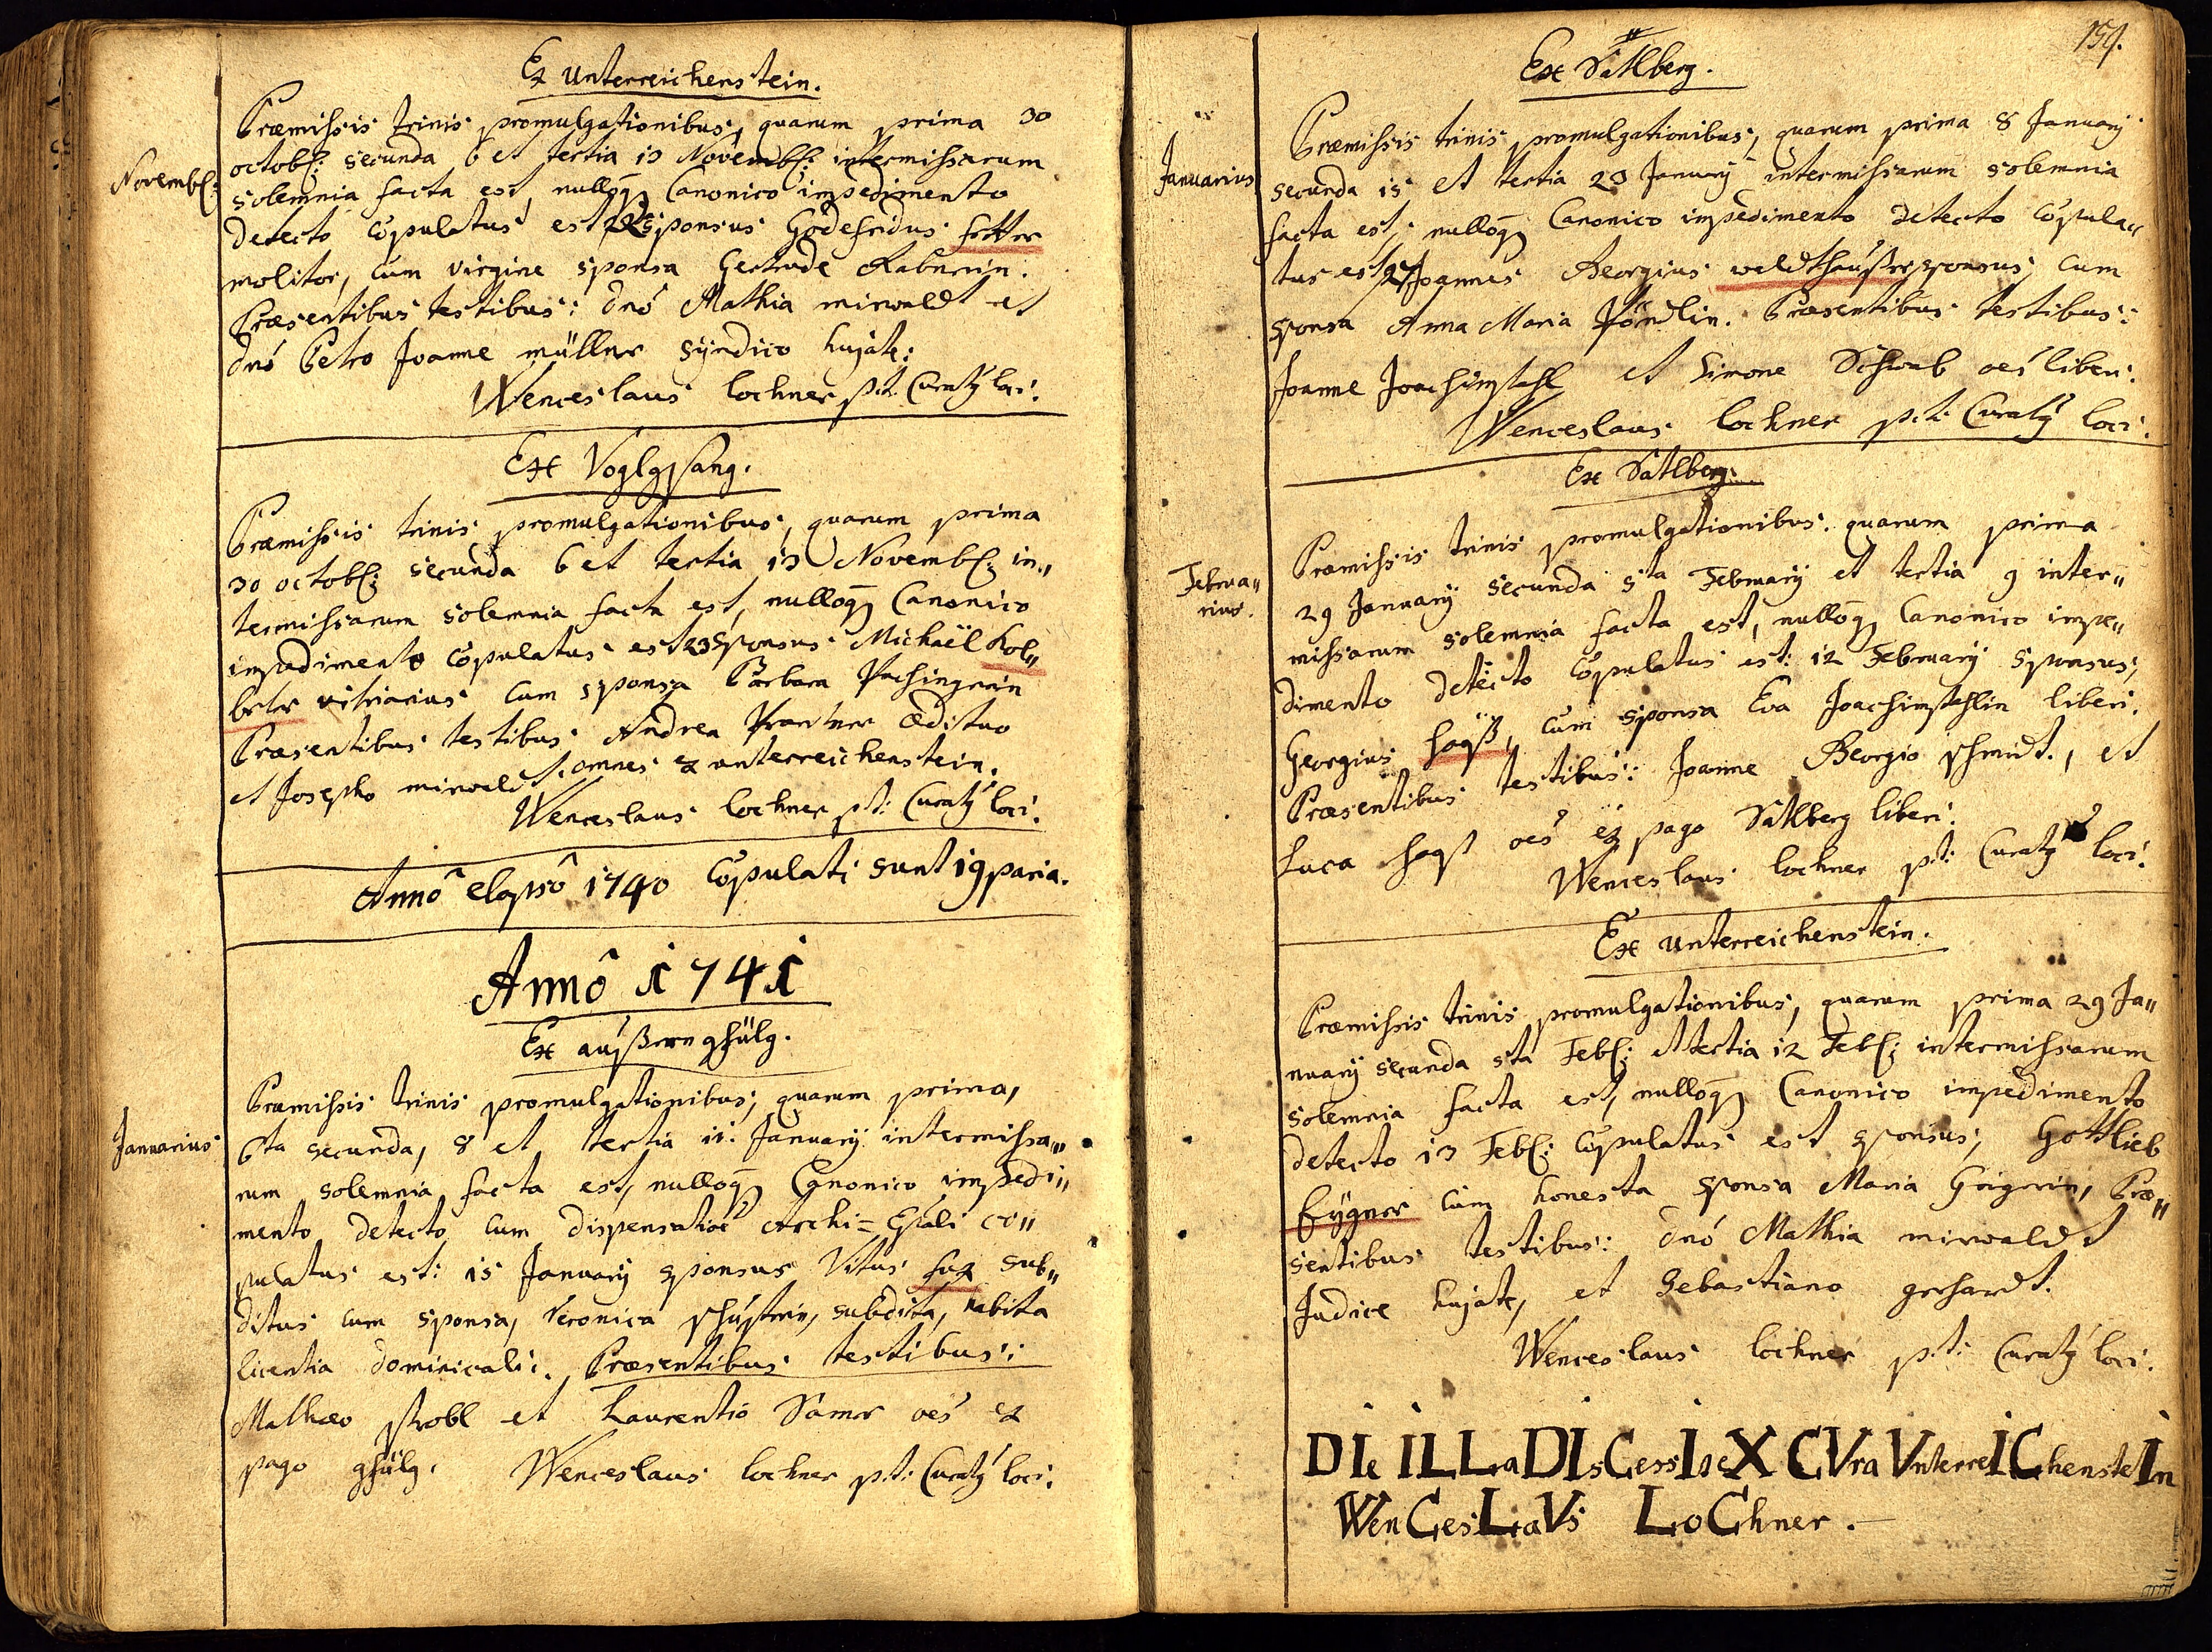 Ex Unterreichenstein.
Præmissis trinis promulgationibus, quarum prima 30
Novemb:
octob: secunda 6 et tertia 13 Novemb: intermissarum
solemnia facta est, nulloq Canonico impedimento
detecto copulatus est 22 sponsus Godefridus
molitor, cum virgine sponsa Gertrude Rabnerin.
Præsentibus testibus: dnô Mathia mirwaldt et
dnô Petro Joanne müllner syndico hujate:
Wenceslaus Lochner p:t: Curatg loci.
Ex Voglgsang.
Præmissis trinis promulgationibus, quarum prima
30 octob: secunda 6 et tertia 13 Novemb: in„
termissarum solemnia facta est, nulloq Canonico
impedimento copulatus est 23 sponsus Michaël Kol„
vitriarius cum sponsa Barbara
Præsentibus testibus Andrea Prantner Ædituo
et Josepho mirwaldt omnes ex unterreichenstein.
Wenceslaus Lochner p:t: Curatg loci.
Annô elapsô 1740 Copulati sunt 19 paria.
Annô 1741
Ex außern gfülg.
Præmissis trinis promulgationibus, quarum prima,
Januarius
6ta secunda, 8 et tertia 11. Januarÿ intermissa„
rum solemnia facta est, nulloq Canonico impedi„
mento detecto cum dispensatioe Archi=Epâli co„
pulatus est: 15 Januarÿ sponsus Vitus fux sub„
ditus cum sponsa, Veronica schustrin, subdita, habita
licentia dominicali. Præsentibus testibus:
Mathæo strobl et Laurentio Samer oes ex
pago gfülg. Wenceslaus Lochner p:t: Curatg loci.
154.
Ex Sätlberg.
Præmissis trinis promulgationibus, quarum prima 8 Januarÿ
Januarius
secunda 15 et tertia 23 Januarÿ intermissarum solemnia
facta est, nulloq Canonico impedimento detecto copula„
tus est 24 Joannes Georgius waldthaußer sponsus, cum
sponsa Anna Maria. Præsentibus testibus:
Joanne Joachimstahl et Simone Schwab oes liberi.
Wenceslaus Lochner p:t: Curatg loci.
Ex Sätlberg.
Præmissis trinis promulgationibus. quarum prima
Februa„
rius.
29 Januarÿ secunda 5ta Februarÿ et tertia 9 inter„
missarum solemnia facta est, nulloq Canonico impe„
dimento detecto copulatus est: 12 Februarÿ sponsus,
Georgius cum sponsa Eva Joachimstahlin liberi.
Præsentibus testibus: Joanne Georgio schmidt, et
Luca oes ex pago Sätlberg liberi.
Wenceslaus Lochner p:t: Curatg loci.
Ex unterreichenstein.
Præmissis trinis promulgationibus, quarum prima 29 Ja„
nuarÿ secunda 5ta Feb: et tertia 12 Feb: intermissarum
solemnia facta est, nulloq Canonico impedimento
detecto 13 Feb: copulatus est sponsus, Gottlieb
cum honesta sponsa Maria Geigerin, Præ„
sentibus testibus: dnô Mathia mirwaldt
Judice hujate, et Sebastiano gerhardt.
Wenceslaus Lochner p:t: Curatg loci.
DIe ILLa DIsCessIseX CVra VnterreIChensteIn
WenCesLaVs LoChner.